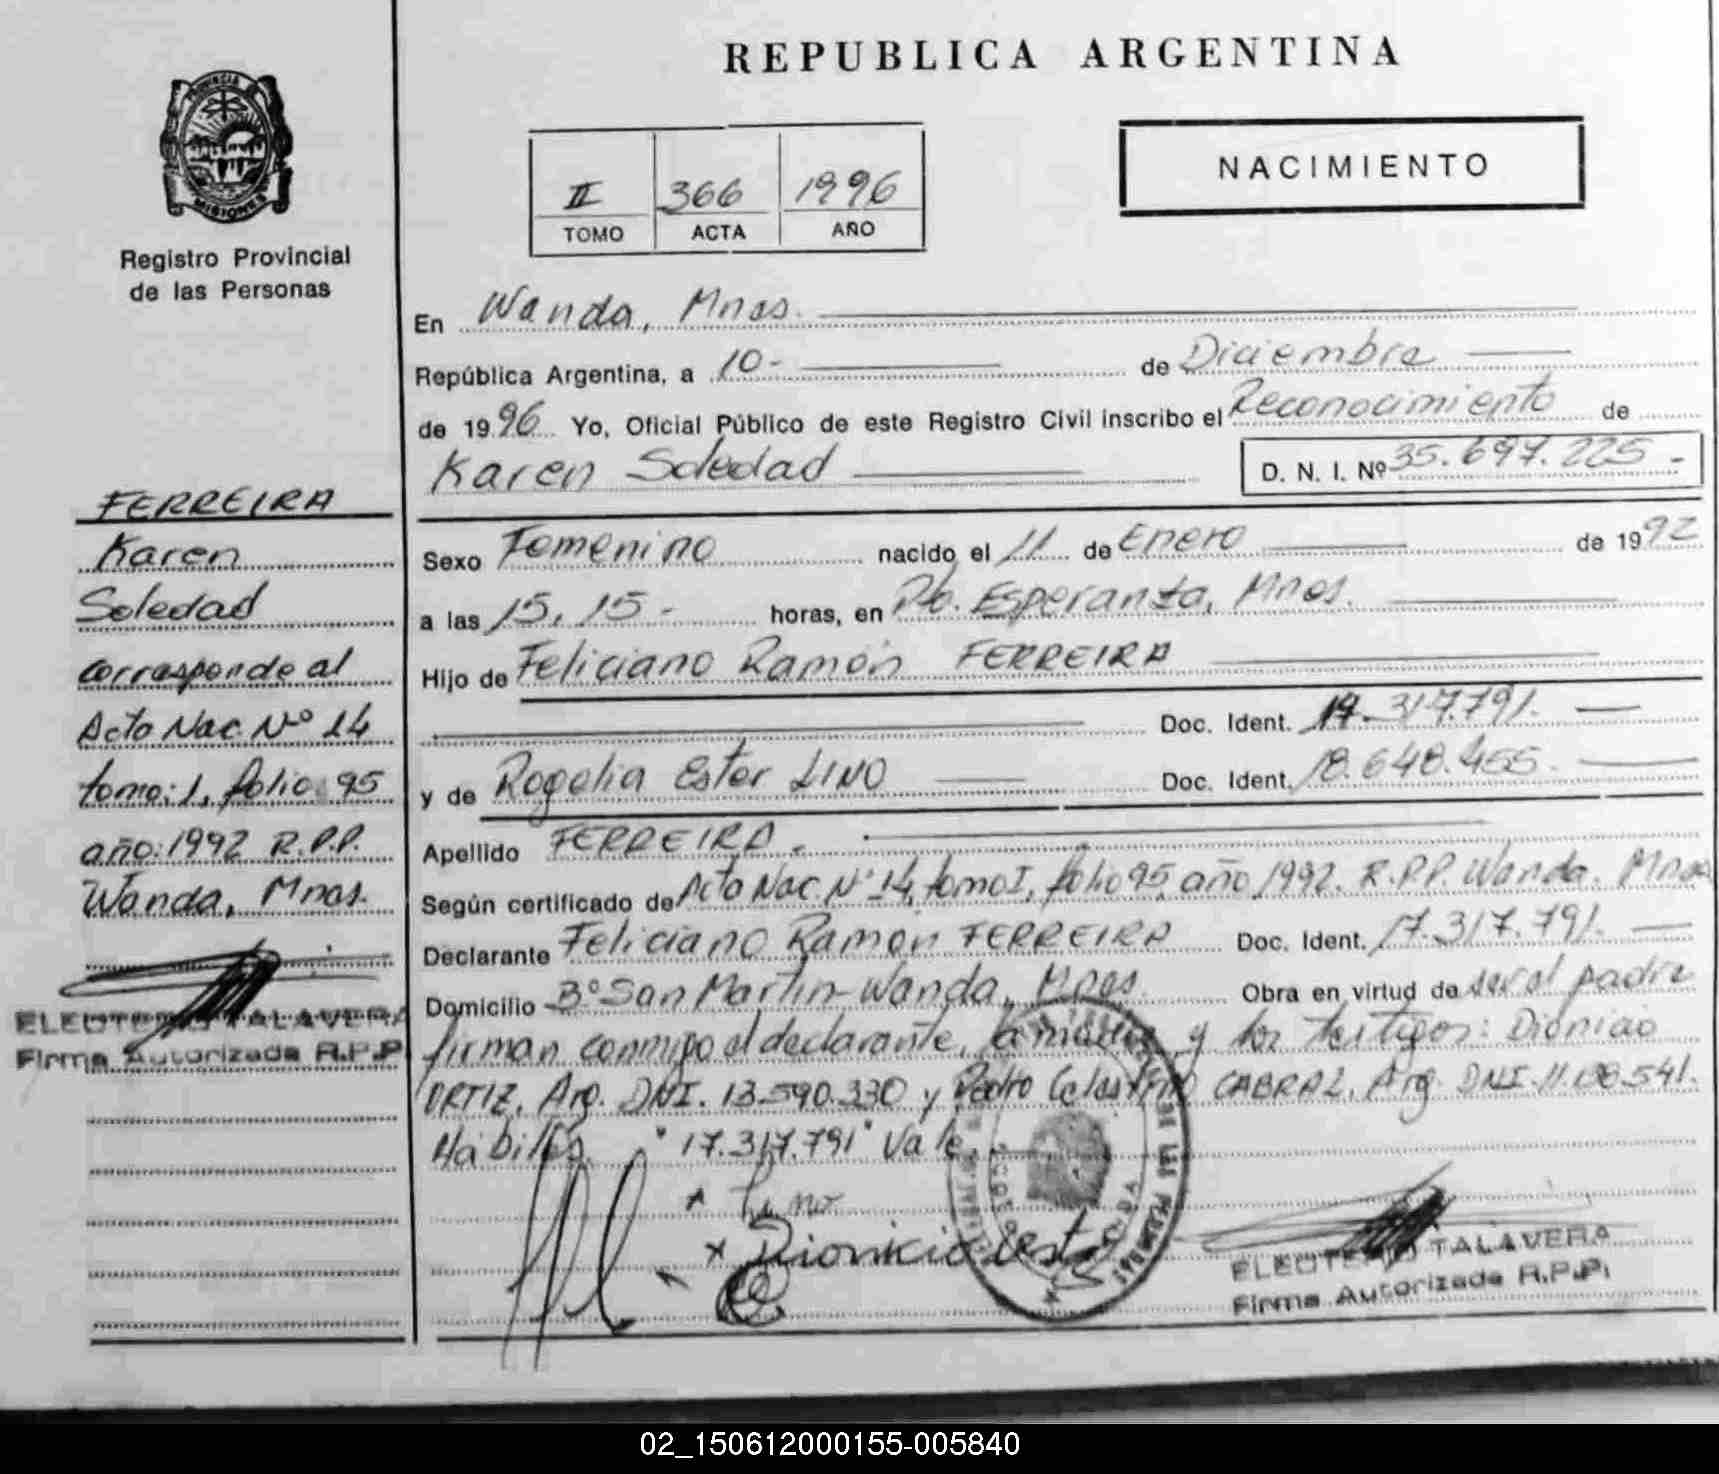 REPUBLICA ARGENTINA
NACIMIENTO
II 366 1996
TOMO ACTA AÑO
PROVINCIA DE
MISIONES
Registro Provincial
de las Personas
FERREIRA
Karen
Soledad
corresponde al
Acta Nac. Nº 14
tomo: 1, folio 95
año: 1992 R.P.P.
Wanda, Mnes.
ELEUTERIO TALAVERA
Firma Autorizada R.P.P.
En Wanda, Mnes.
República Argentina, a 10- de Diciembre
de 1996 Yo, Oficial Público de este Registro Civil inscribo el Reconocimiento de
Karen Soledad D. N. I. Nº 35.697.225-
Sexo Femenino nacido el 11 de Enero de 1992
a las 15,15- horas, en Pto. Esperanza, Mnes.
Hijo de Feliciano Ramón FERREIRA
Doc. Ident. 17.317.791.
y de Rogelia Ester LINO Doc. Ident. 18.648.455.
Apellido FERREIRA.
Según certificado de Acta Nac. Nº 14, tomo I, folio 95, año 1992. R.P.P. Wanda. Mnes
Declarante Feliciano Ramón FERREIRA Doc. Ident. 17.317.791.
Domicilio Bº San Martín-Wanda, Mnes. Obra en virtud de ser el padre
firman conmigo el declarante, la madre y los testigos: Dionicio
ORTIZ, Arg. DNI. 13.590.330 y Pedro Celestino CABRAL, Arg. DNI. 11.138.541.
Hábiles. "17.317.791" Vale.
x Lino
x Dionicio
ELEUTERIO TALAVERA
Firma Autorizada R.P.P.
02_150612000155-005840